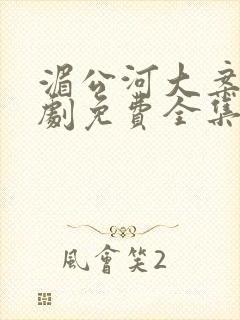 湄公河大案
劇免費全集
風會笑2